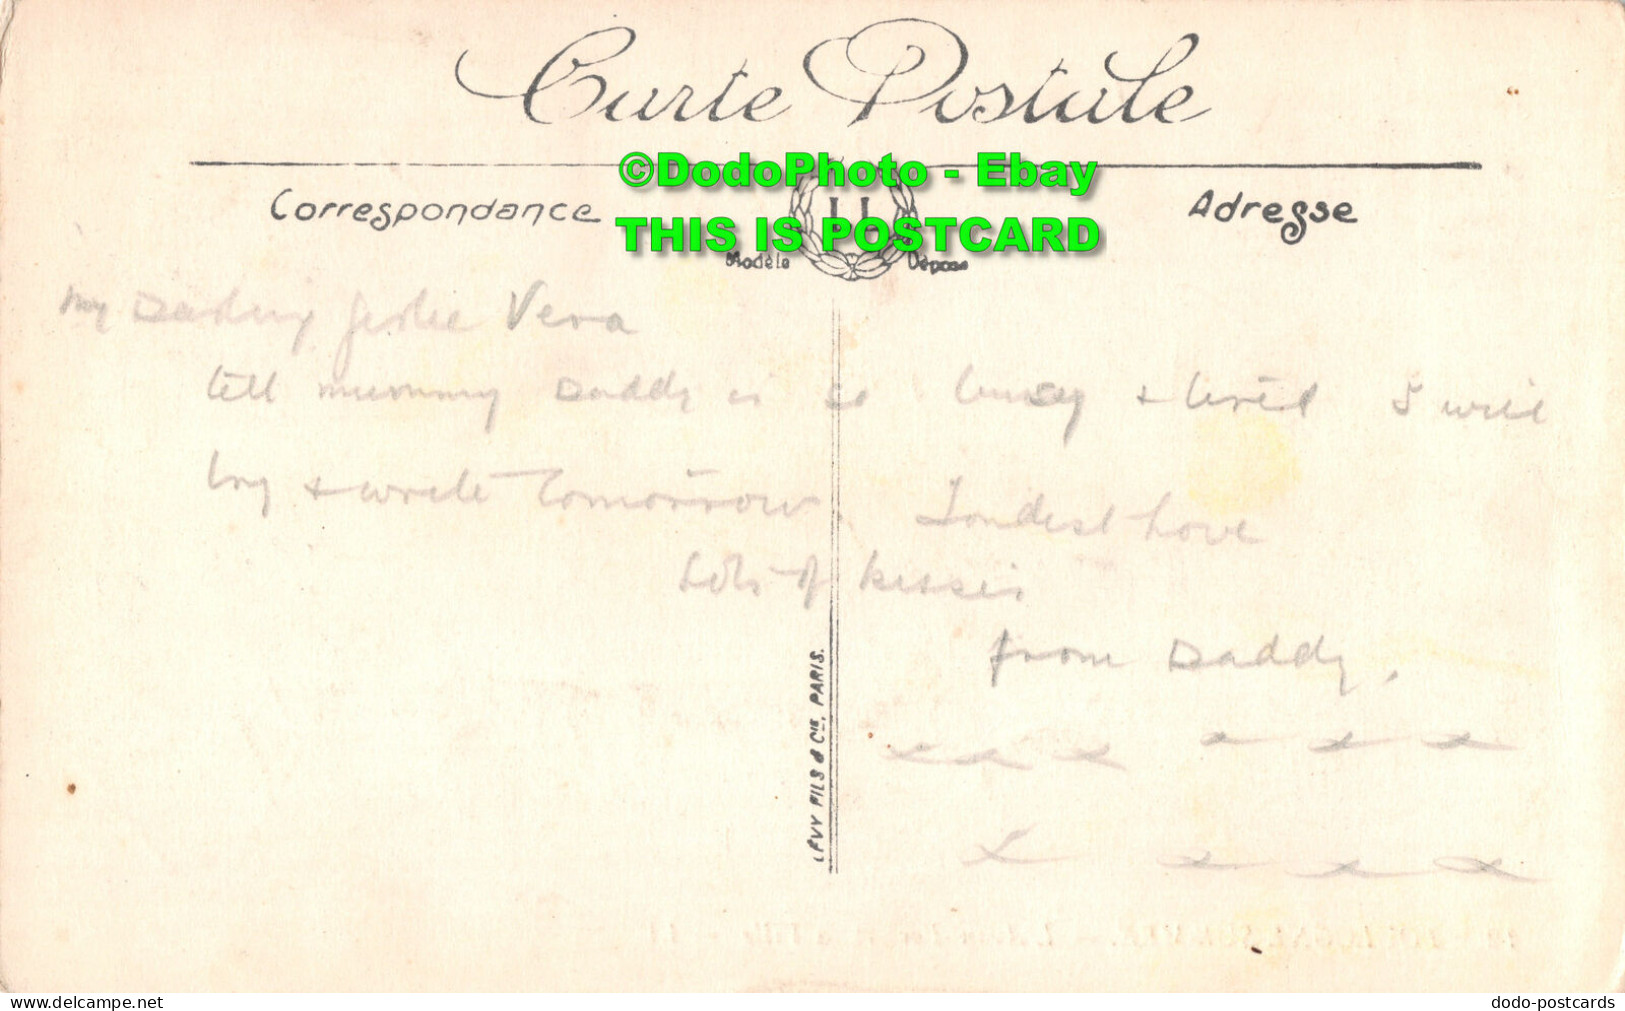 Carte Postale
©DodoPhoto - Ebay
THIS IS POSTCARD
Correspondance
LL
Adresse
Modèle Déposé
My Darling Vera
tell mummy Daddy is so busy & tired I will
try & write tomorrow. Fondest Love
Lots of kisses
from Daddy.
x x x x x x
x x x x
LÉVY FILS & Cie, PARIS.
BOULOGNE-SUR-MER. — LL
delcampe.net
dodo-postcards